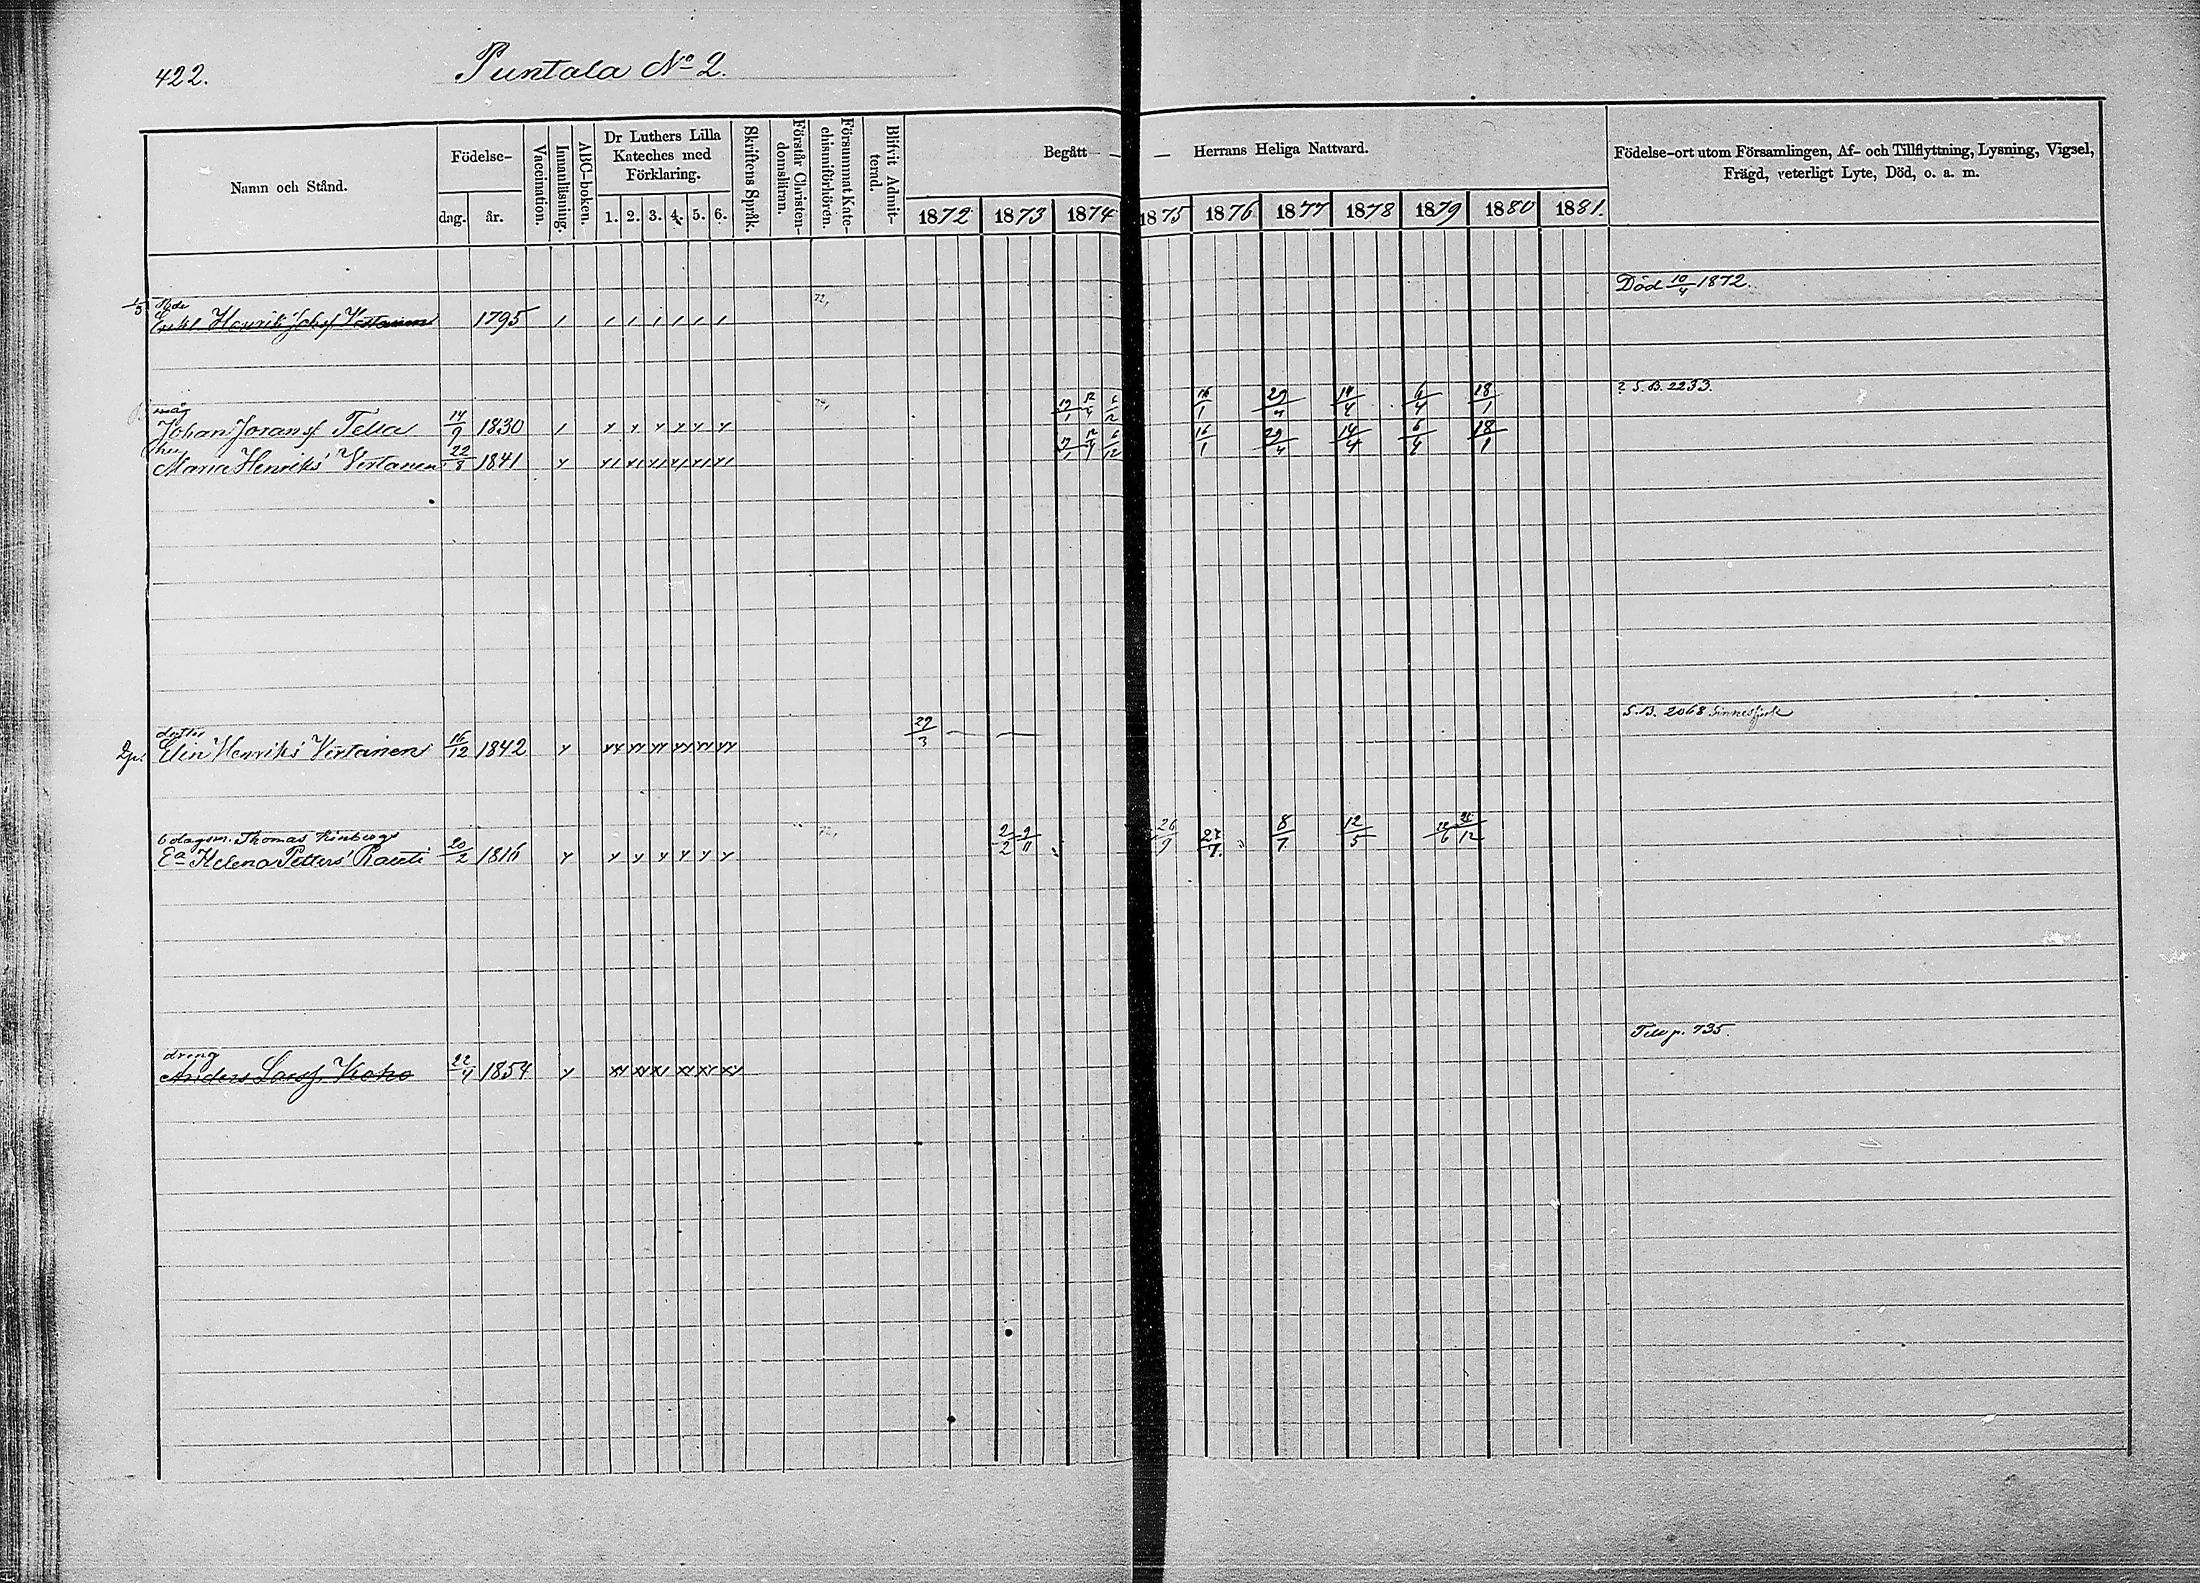 422. Puntala No 2.
Namn och Stånd.
Födelse-
dag. år.
Vaccination.
Innanläsning.
ABC-boken.
Dr Luthers Lilla
Kateches med
Förklaring.
1. 2. 3. 4. 5. 6.
Skriftens Språk.
Förstår Christen-
domslärnn.
Försummat Kate-
chismiförhören.
Blifvit Admit-
terad.
Begått — — Herrans Heliga Nattvard.
1872 1873 1874 1875 1876 1877 1878 1879 1880 1881.
Födelse-ort utom Församlingen, Af- och Tillflyttning, Lysning, Vigsel,
Frägd, veterligt Lyte, Död, o. a. m.
Död 10/4 1872.
Enkl Henrik Johsf Vertanen 1795
måg ? S.B. 2233.
Johan Joransf Tella 14/9 1830 16/1 29/4 14/4 6/4 18/1
hu
Maria Henriks Vertanen 22/8 1841 16/1 29/4 14/4 6/4 18/1
dotter S.B. 2068 Sinnessjuk
Elin Henriks Vertanen 16/12 1842 29/3 — —
bdagsm. Thomas Kinbergs
Ea Helena Petters Rauti 20/2 1816 2/2 9/11 26/9 8/7 12/5
dreng
Anders Larsf. Koho 22/4 1854